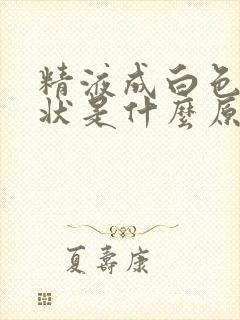 精液成白色
状是什麼原
夏壽康